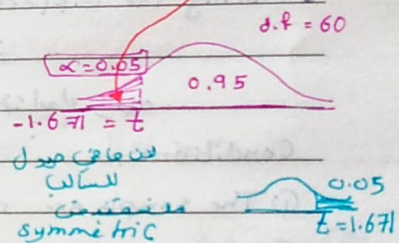 d.f = 60
α = 0.05
0.95
-1.671 = t
لان ما في جدول
للسالب
symmetric
0.05
t = 1.671